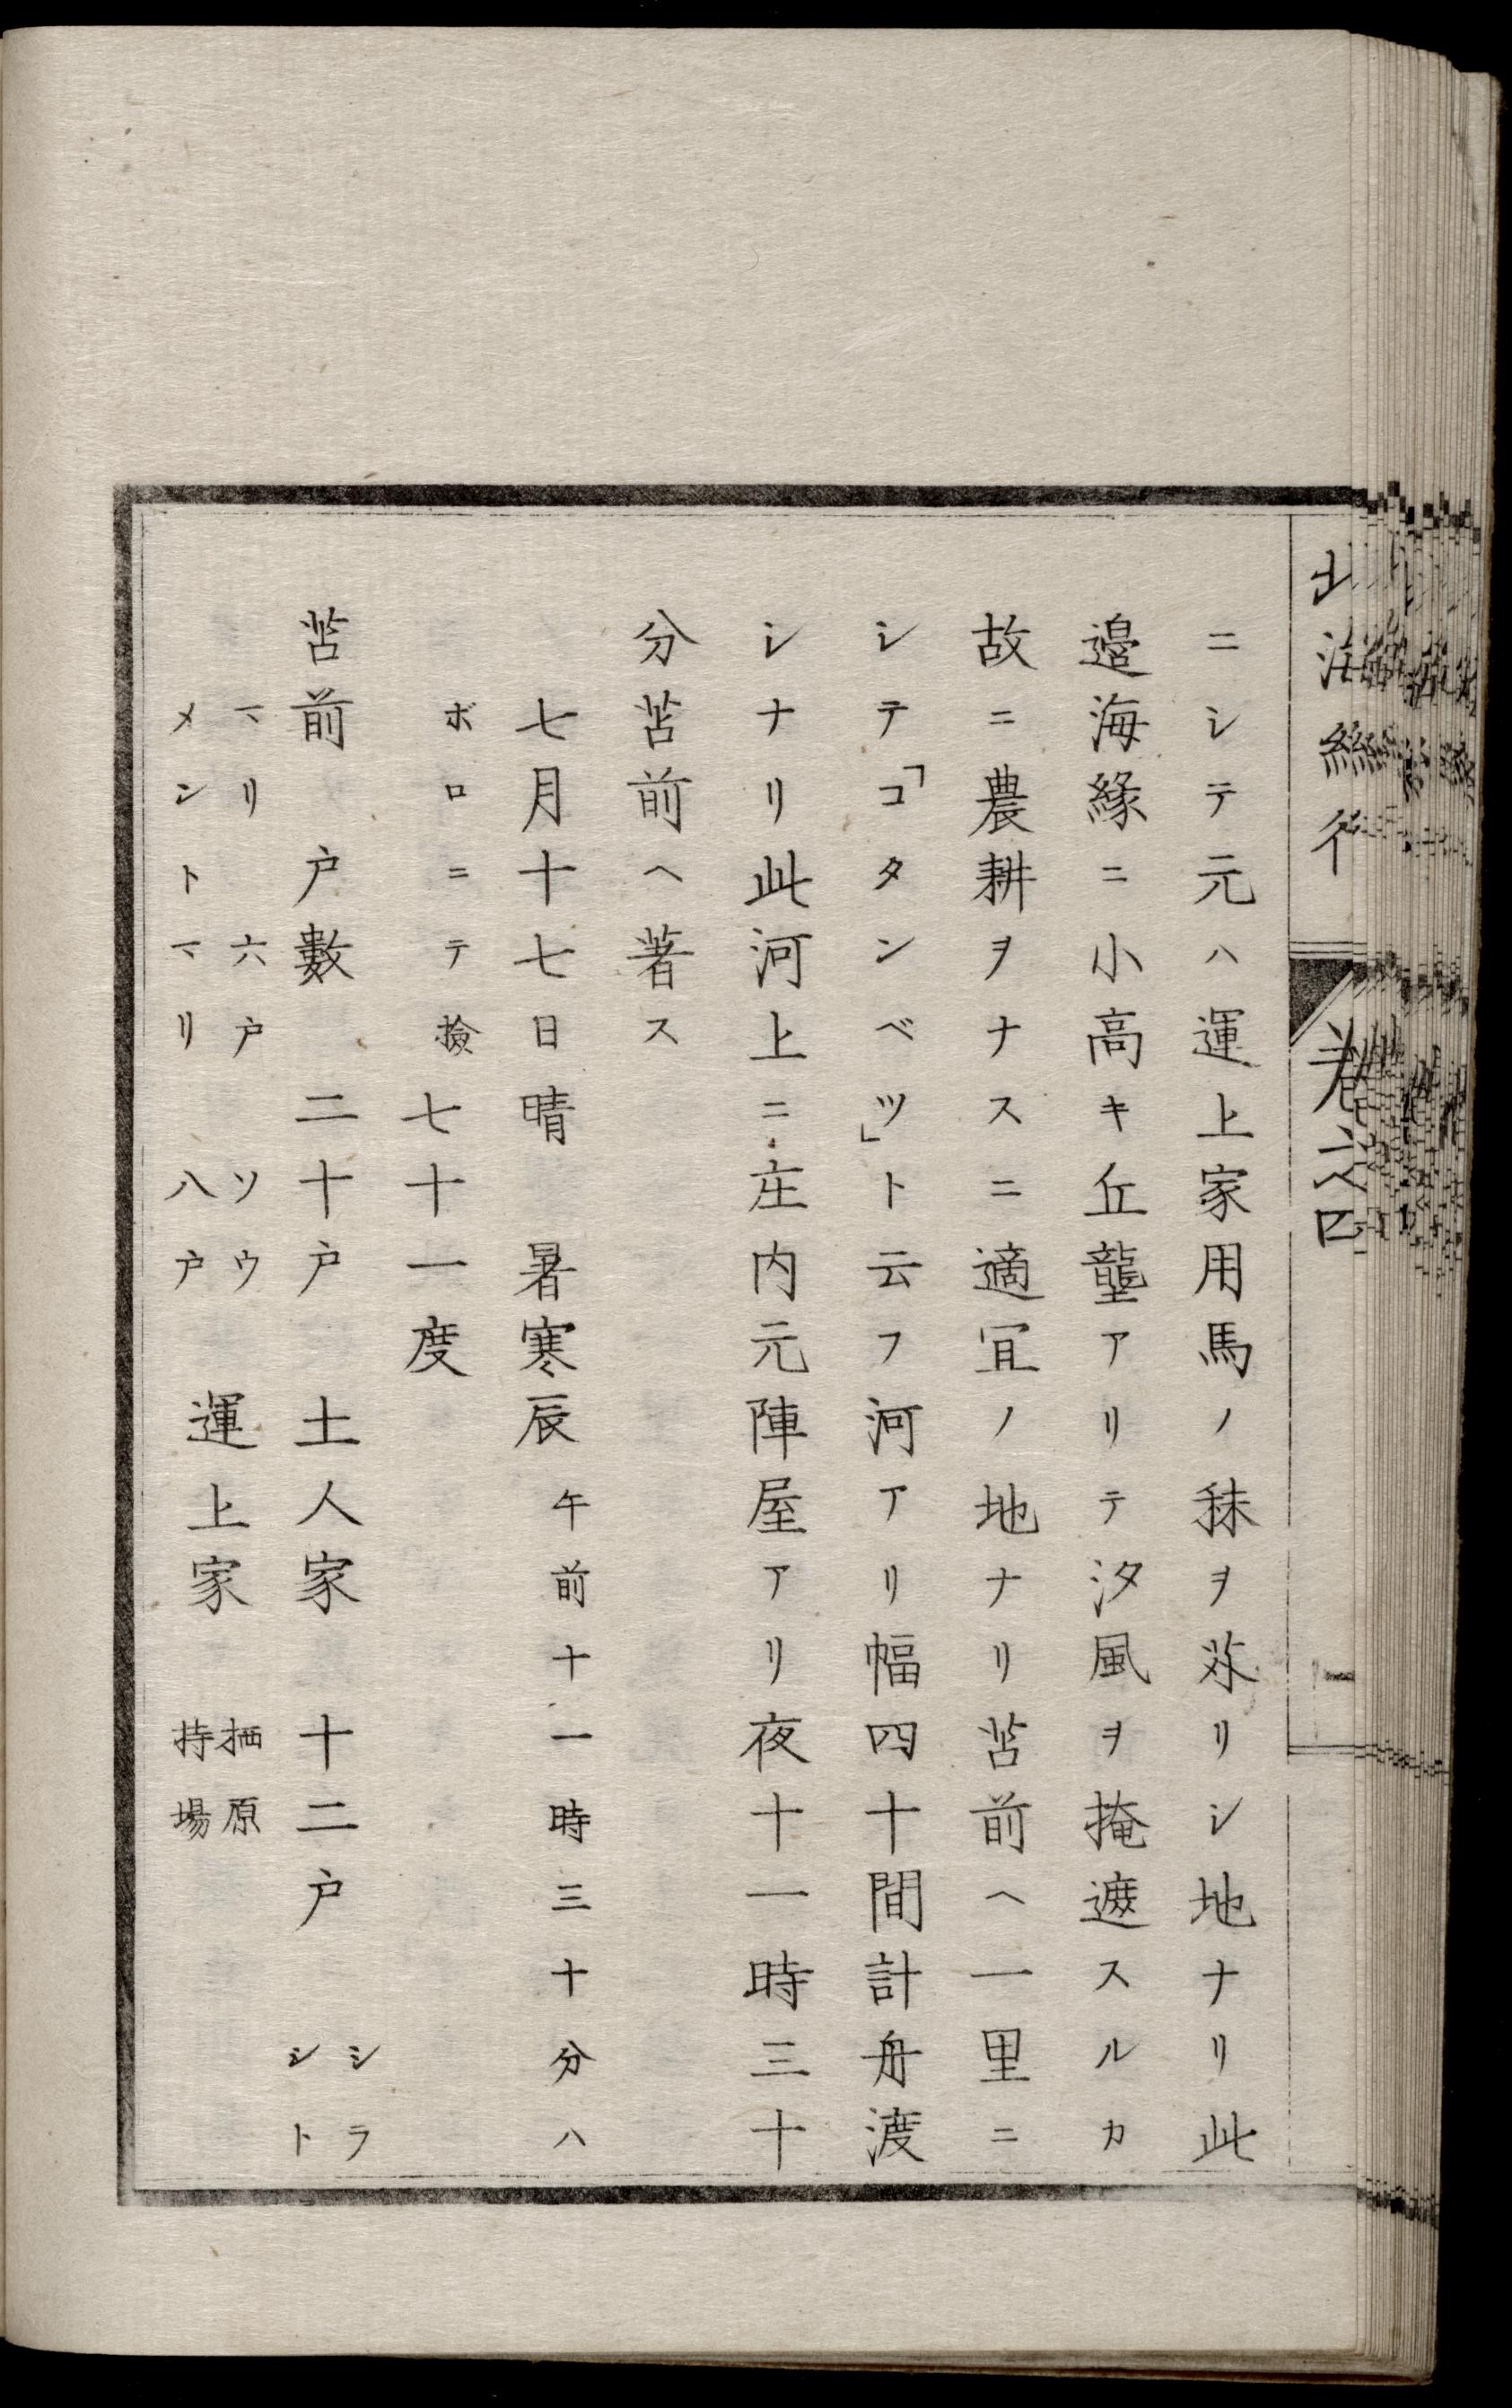 ニシテ元ハ運上家用馬ノ秣ヲ苅リシ地ナリ此
邉海縁ニ小高キ丘壟アリテ汐風ヲ掩遮スルカ
故ニ農耕ヲナスニ適冝ノ地ナリ苫前ヘ一里ニ
シテ「コタンベツ」ト云フ河アリ幅四十間計舟渡
シナリ此河上ニ庄内元陣屋アリ夜十一時三十
分苫前ヘ著ス
七月十七日晴 暑寒辰 午前十一時三十分ハ
ボロニテ撿 七十一度
苫前 戸數 二十戸 土人家 十二戸 シラ
シト
マリ 六戸 ソウ
メントマリ 八戸 運上家 栖原
持場
北海紀行 巻之四